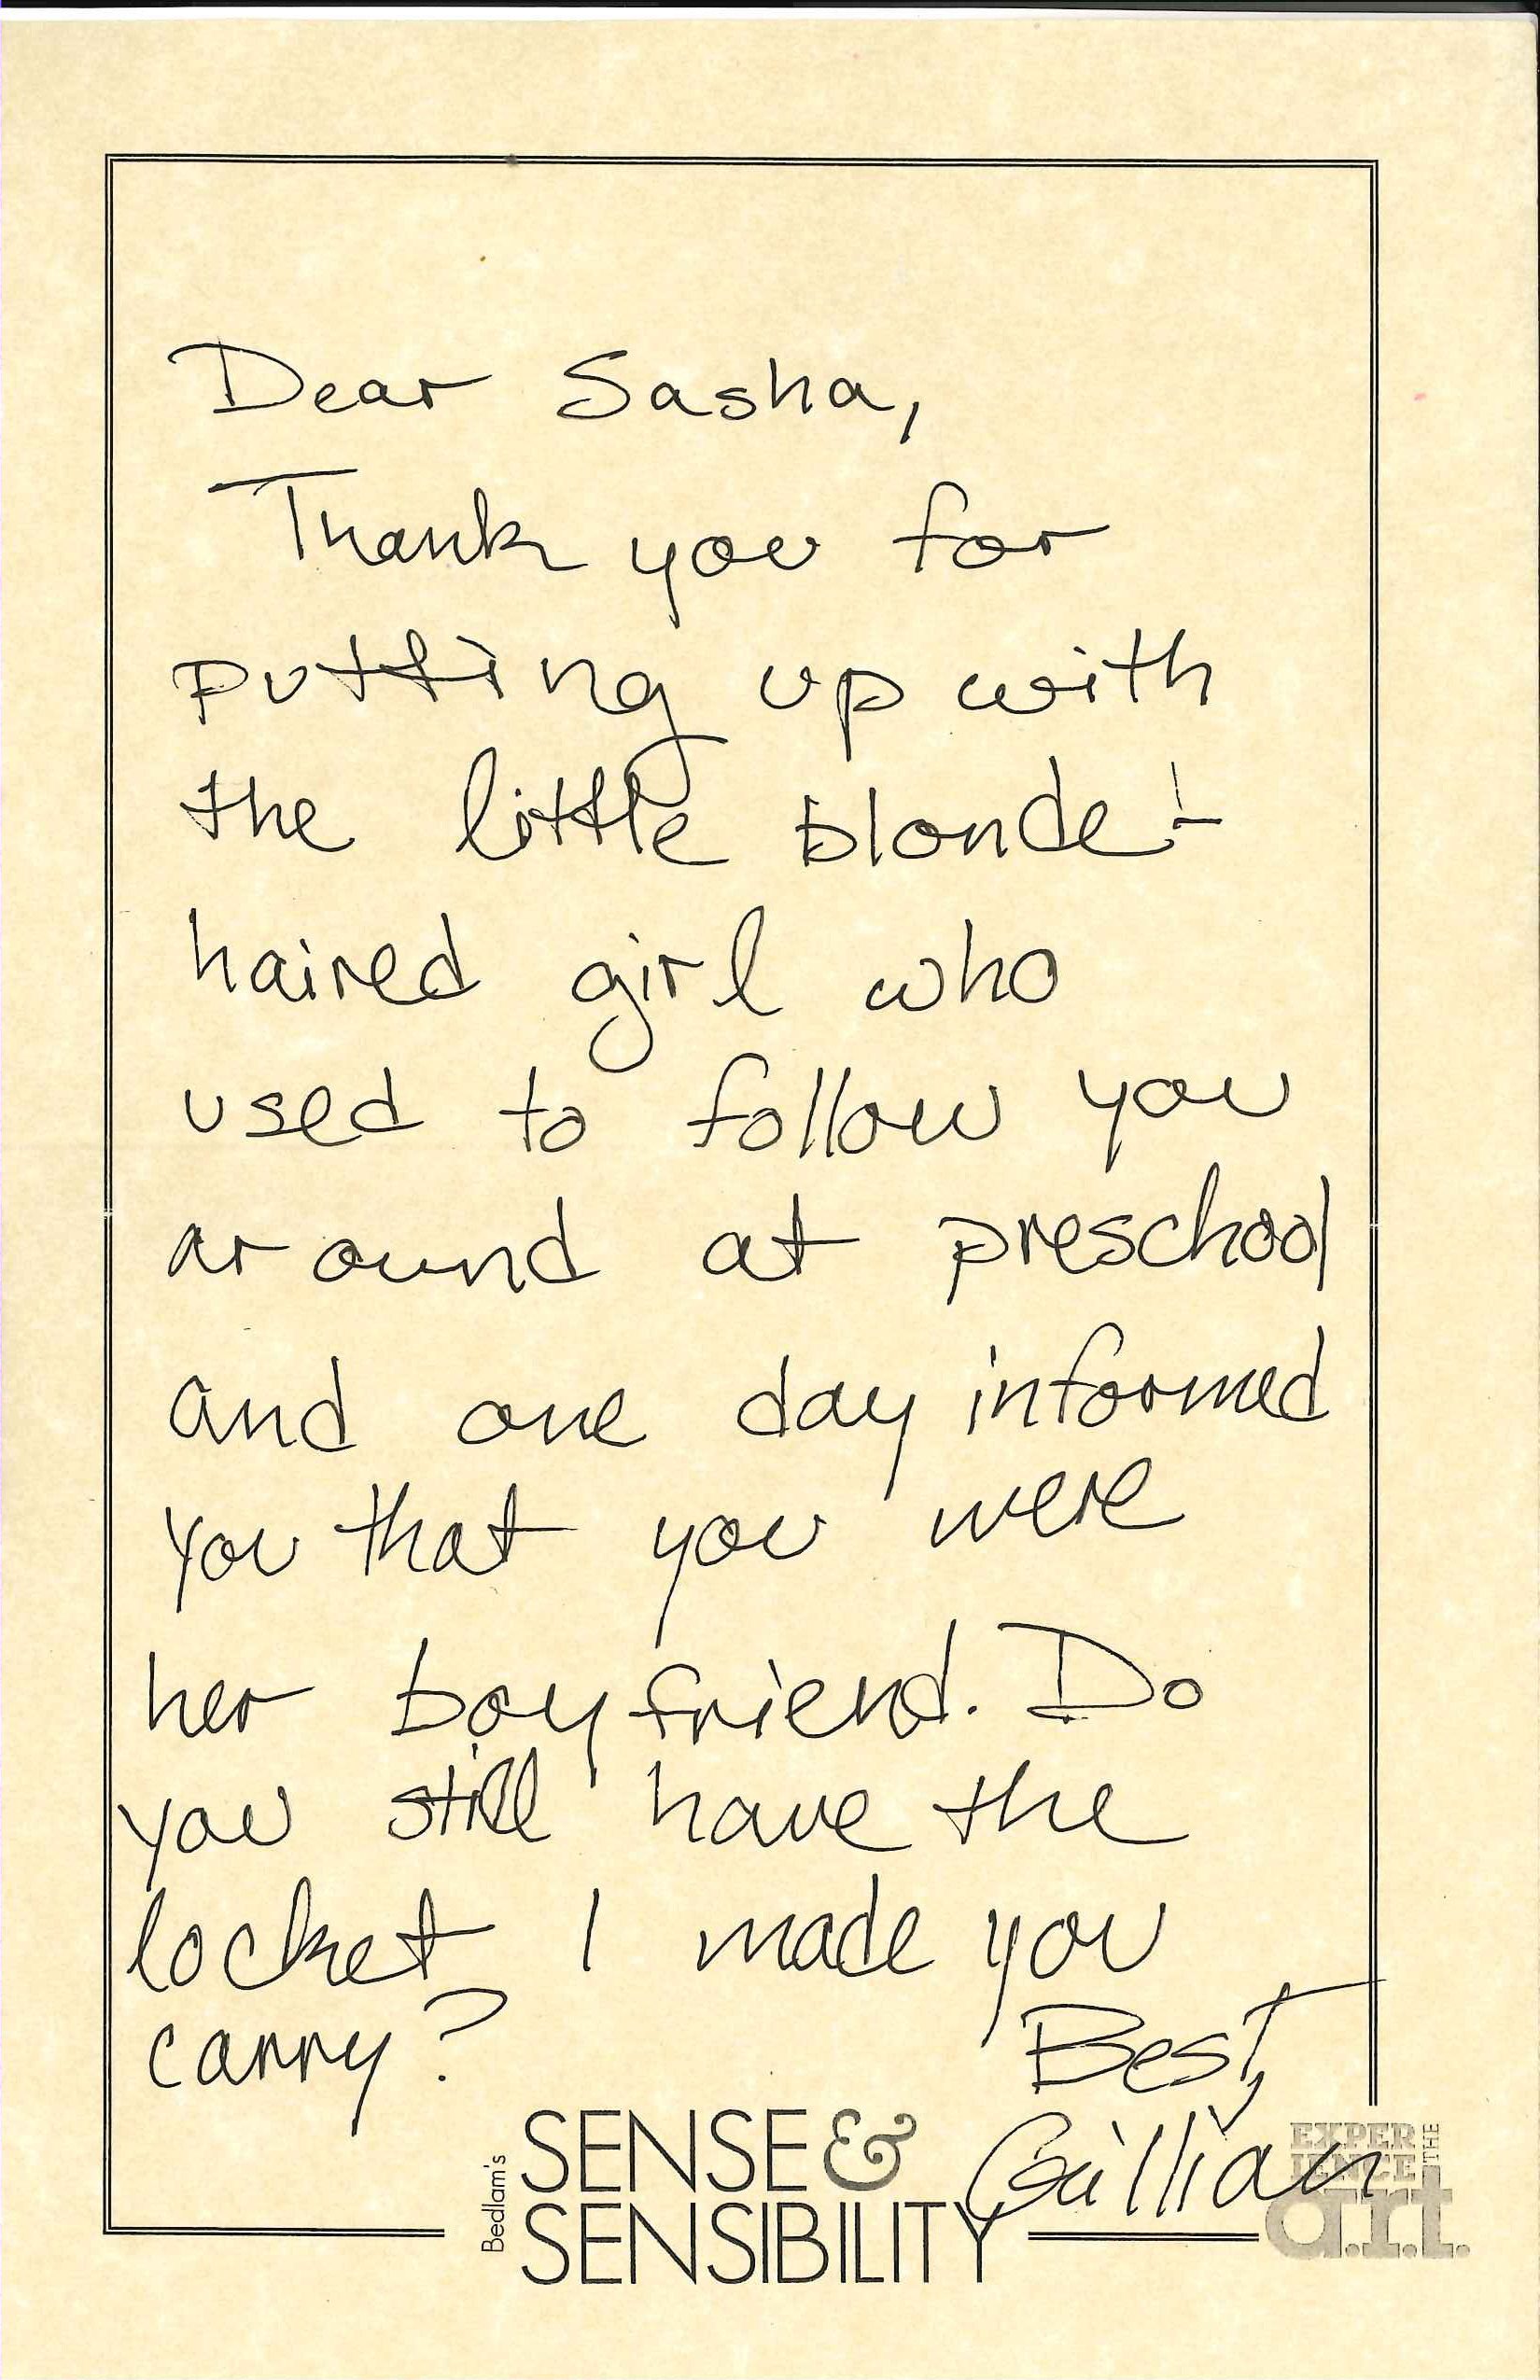 Dear Sasha,
Thank you for
putting up with
the little blonde-
haired girl who
used to follow you
around at preschool
and one day informed
you that you were
her boyfriend. Do
you still have the
locket I made you
carry?
Best,
Gillian
Bedlam's
SENSE &
SENSIBILITY
EXPER
IENCE
THE
a.r.t.